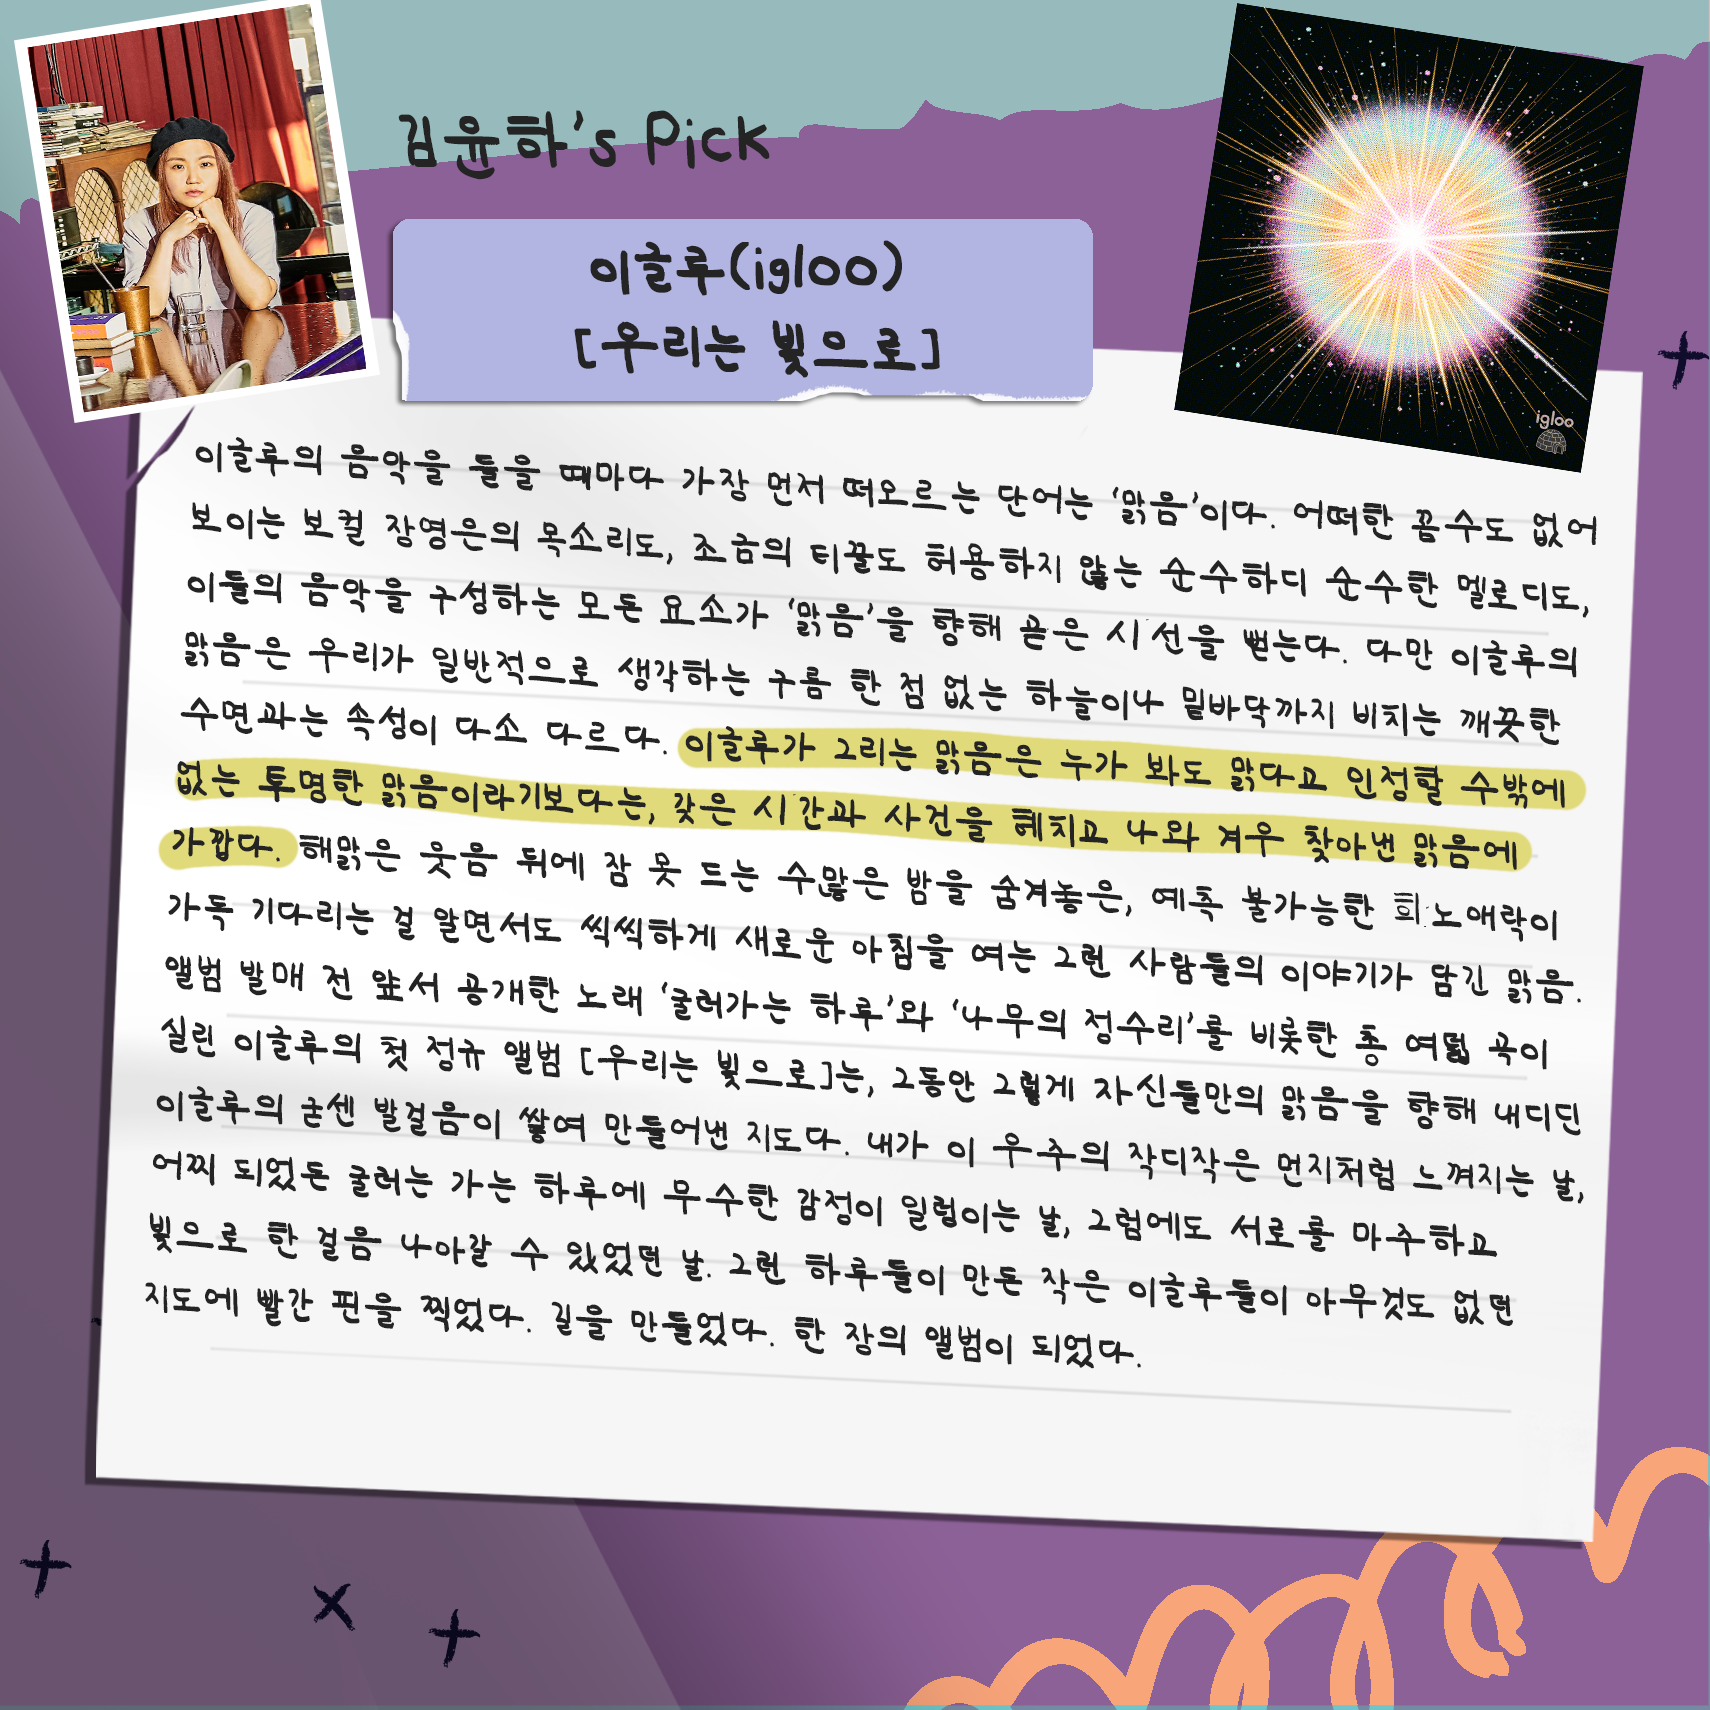 김윤하's Pick
이글루(igloo)
[우리는 빛으로]
igloo
이글루의 음악을 들을 때마다 가장 먼저 떠오르는 단어는 '맑음'이다. 어떠한 꼼수도 없어
보이는 보컬 장영은의 목소리도, 조금의 티끌도 허용하지 않는 순수하디 순수한 멜로디도,
이들의 음악을 구성하는 모든 요소가 '맑음'을 향해 곧은 시선을 뻗는다. 다만 이글루의
맑음은 우리가 일반적으로 생각하는 구름 한 점 없는 하늘이나 밑바닥까지 비치는 깨끗한
수면과는 속성이 다소 다르다. 이글루가 그리는 맑음은 누가 봐도 맑다고 인정할 수밖에
없는 투명한 맑음이라기보다는, 갖은 시간과 사건을 헤치고 나와 겨우 찾아낸 맑음에
가깝다. 해맑은 웃음 뒤에 잠 못 드는 수많은 밤을 숨겨놓은, 예측 불가능한 희노애락이
가득 기다리는 걸 알면서도 씩씩하게 새로운 아침을 여는 그런 사람들의 이야기가 담긴 맑음.
앨범 발매 전 앞서 공개한 노래 '굴러가는 하루'와 '나무의 정수리'를 비롯한 총 여덟 곡이
실린 이글루의 첫 정규 앨범 [우리는 빛으로]는, 그동안 그렇게 자신들만의 맑음을 향해 내디딘
이글루의 굳센 발걸음이 쌓여 만들어낸 지도다. 내가 이 우주의 작디작은 먼지처럼 느껴지는 날,
어찌 되었든 굴러는 가는 하루에 무수한 감정이 일렁이는 날, 그럼에도 서로를 마주하고
빛으로 한 걸음 나아갈 수 있었던 날. 그런 하루들이 만든 작은 이글루들이 아무것도 없던
지도에 빨간 핀을 찍었다. 길을 만들었다. 한 장의 앨범이 되었다.